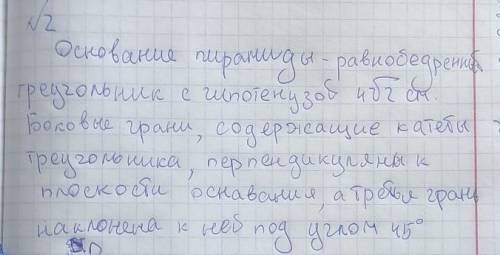 √2
Основание пирамиды - равнобедренный
треугольник с гипотенузой 4√2 см.
Боковые грани, содержащие катеты
треугольника, перпендикулярны к
плоскости оснавания, а третья грань
наклонена к ней под углом 45°